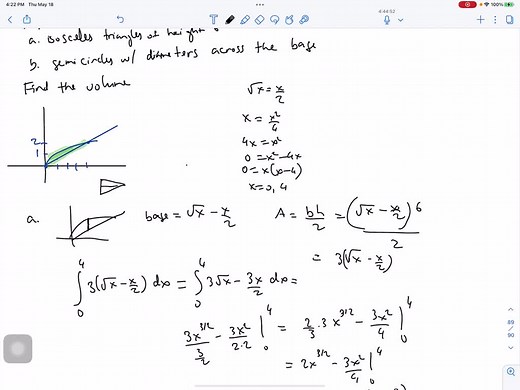 4:22 PM Thu May 18
4:44:52
100%
a. isosceles triangles of height 6
b. semicircles w/ diameters across the base
Find the volume
√x = x/2
x = x²/4
4x = x²
0 = x² - 4x
0 = x(x-4)
x = 0, 4
2
1
a.
base = √x - x/2
A = bh/2 = (√x - x/2)6/2
= 3(√x - x/2)
∫₀⁴ 3(√x - x/2) dx = ∫₀⁴ 3√x - 3x/2 dx =
3x^(3/2)/(3/2) - 3x²/(2·2) |₀⁴ = 2/3 · 3x^(3/2) - 3x²/4 |₀⁴
= 2x^(3/2) - 3x²/4 |₀⁴
89
90